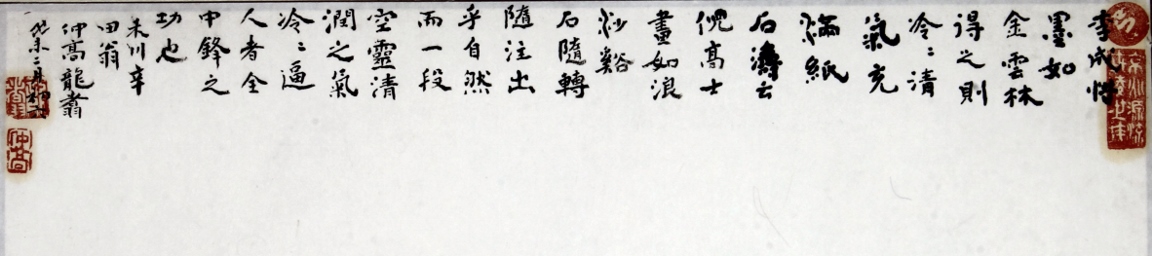 李成惜
墨如
金雲林
得之則
冷〻清
氣充
滿紙
石濤云
倪高士
畫如浪
沙谿
石隨轉
隨注出
乎自然
而一段
空靈清
潤之氣
冷〻逼
人者全
中鋒之
功也
川辛
田翁
仲高龍翥
未二月
仲高